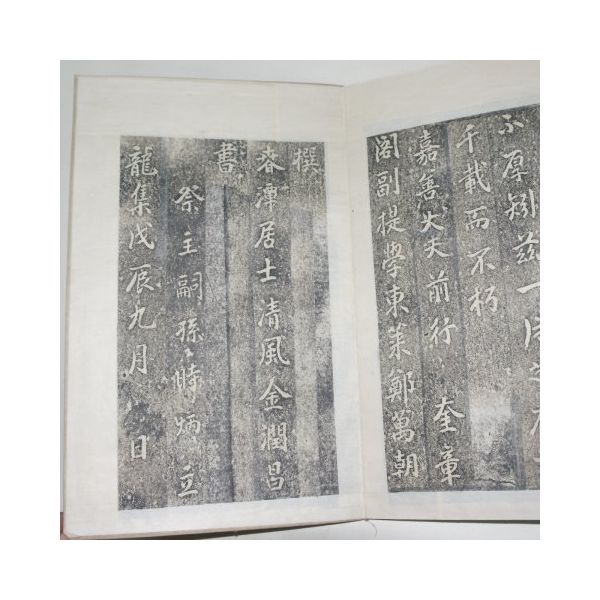 不厚矧茲一片之
千載而不朽
嘉善大夫前行 奎章
閣副提學東萊鄭萬朝
撰
春潭居士清風金潤昌
書
祭主嗣孫時炳立
龍集戊辰九月 日